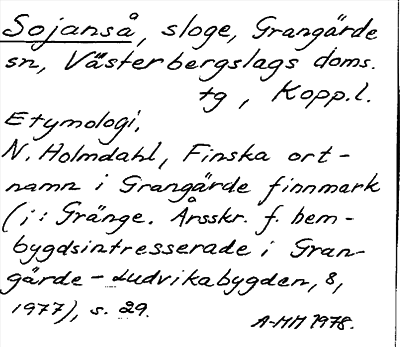 Sojanså, sloge, Grangärde
sn, Västerbergslags doms.
tg, Kopp.l.
Etymologi,
N. Holmdahl, Finska ort-
namn i Grangärde finnmark
(i: Gränge. Årsskr. f. hem-
bygdsintresserade i Gran-
gärde - Ludvikabygden, 8,
1977), s. 29.
A-MH 1978.